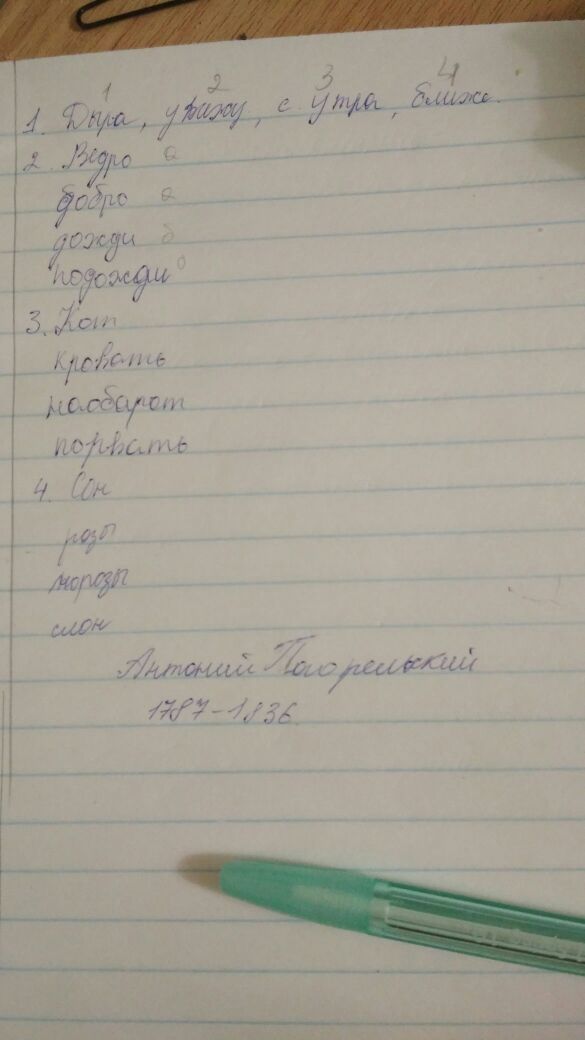 1 2 3 4
1. Дыра, увижу, с утра, ближе.
2. Ведро а
добро а
дожди б
подожди б
3. Кот
кровать
наобарот
порвать
4. Сон
розы
морозы
слон
Антоний Погорельский
1787-1836